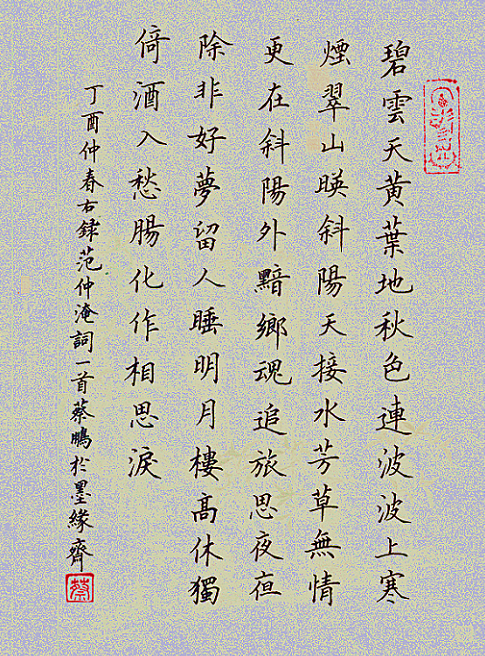 碧雲天黄葉地秋色連波波上寒
煙翠山暎斜陽天接水芳草無情
更在斜陽外黯鄉魂追旅思夜亱
除非好夢留人睡明月樓髙休獨
倚酒入愁腸化作相思淚
丁酉仲春右録范仲淹詞一首蔡鵬扵墨緣齊
蔡